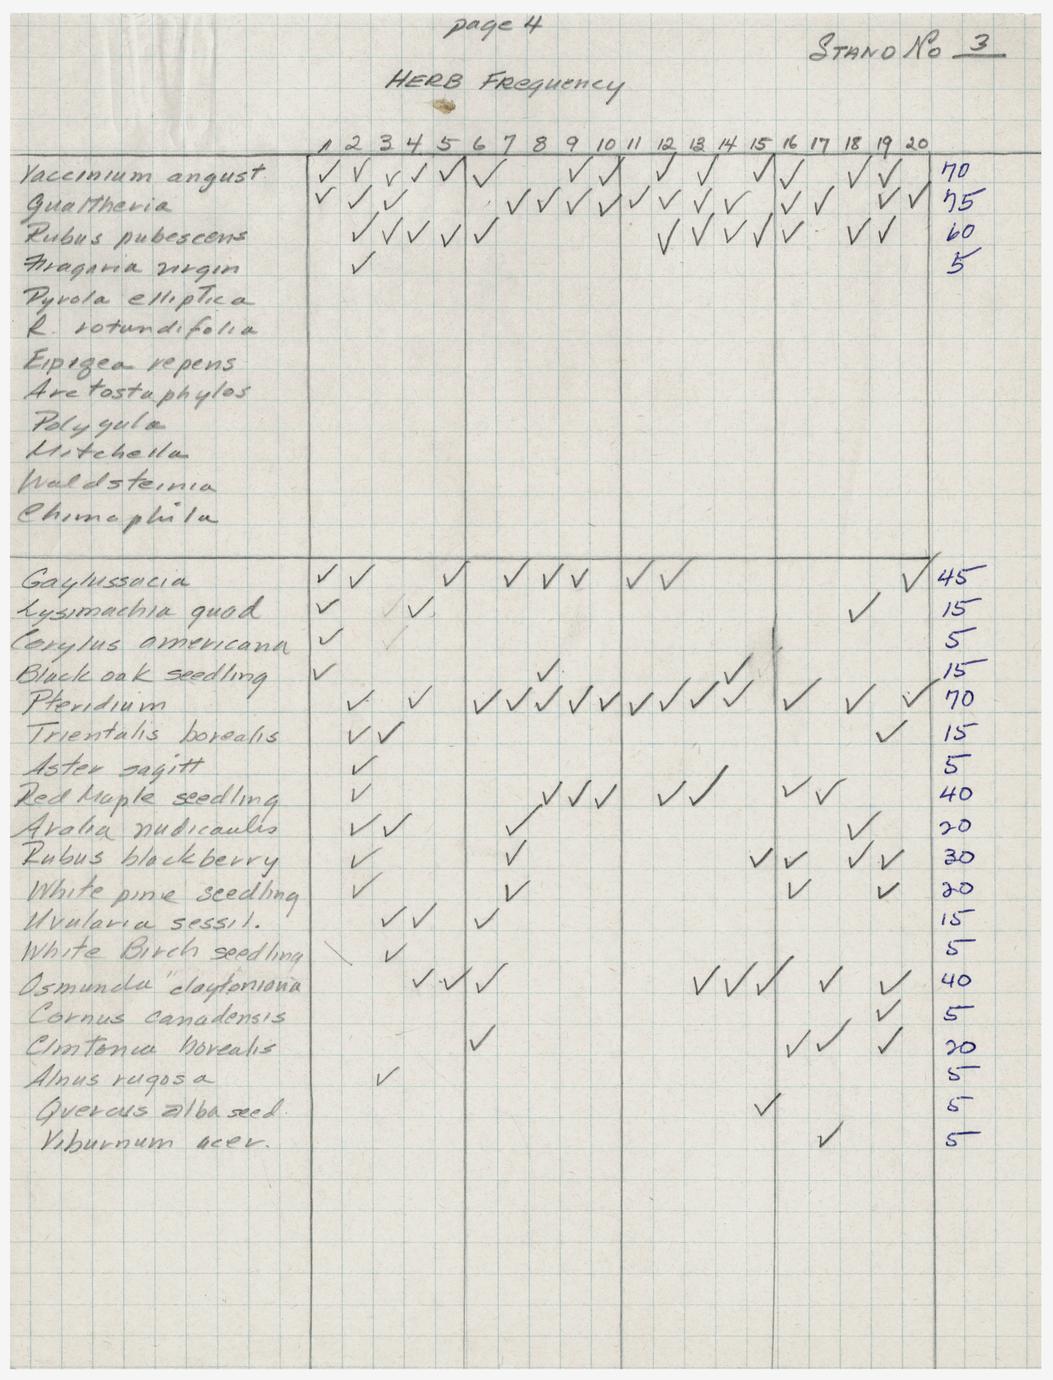 page 4
STAND No 3
HERB Frequency
1 2 3 4 5 6 7 8 9 10 11 12 13 14 15 16 17 18 19 20
Vaccinium angust ✓ ✓ ✓ ✓ ✓ ✓ ✓ ✓ ✓ ✓ ✓ ✓ ✓ ✓ 70
Gualtheria ✓ ✓ ✓ ✓ ✓ ✓ ✓ ✓ ✓ ✓ ✓ ✓ ✓ ✓ ✓ 75
Rubus pubescens ✓ ✓ ✓ ✓ ✓ ✓ ✓ ✓ ✓ ✓ ✓ ✓ 60
Fragaria virgin ✓ 5
Pyrola elliptica
R. rotundifolia
Eipigea repens
Arctostaphylos
Polygula
Mitchella
Waldsteinia
Chimaphila
Gaylussacia ✓ ✓ ✓ ✓ ✓ ✓ ✓ ✓ ✓ 45
Lysimachia quad ✓ ✓ ✓ 15
Corylus americana ✓ 5
Black oak seedling ✓ ✓ ✓ 15
Pteridium ✓ ✓ ✓ ✓ ✓ ✓ ✓ ✓ ✓ ✓ ✓ ✓ ✓ ✓ 70
Trientalis borealis ✓ ✓ ✓ 15
Aster sagitt ✓ 5
Red Maple seedling ✓ ✓ ✓ ✓ ✓ ✓ ✓ ✓ 40
Aralia nudicaulis ✓ ✓ ✓ ✓ 20
Rubus blackberry ✓ ✓ ✓ ✓ ✓ ✓ 30
White pine seedling ✓ ✓ ✓ ✓ 20
Uvularia sessil. ✓ ✓ ✓ 15
White Birch seedling ✓ 5
Osmunda "claytoniana ✓ ✓ ✓ ✓ ✓ ✓ ✓ ✓ 40
Cornus canadensis ✓ 5
Clintonia borealis ✓ ✓ ✓ ✓ 20
Alnus rugosa ✓ 5
Quercus alba seed. ✓ 5
Viburnum acer. ✓ 5